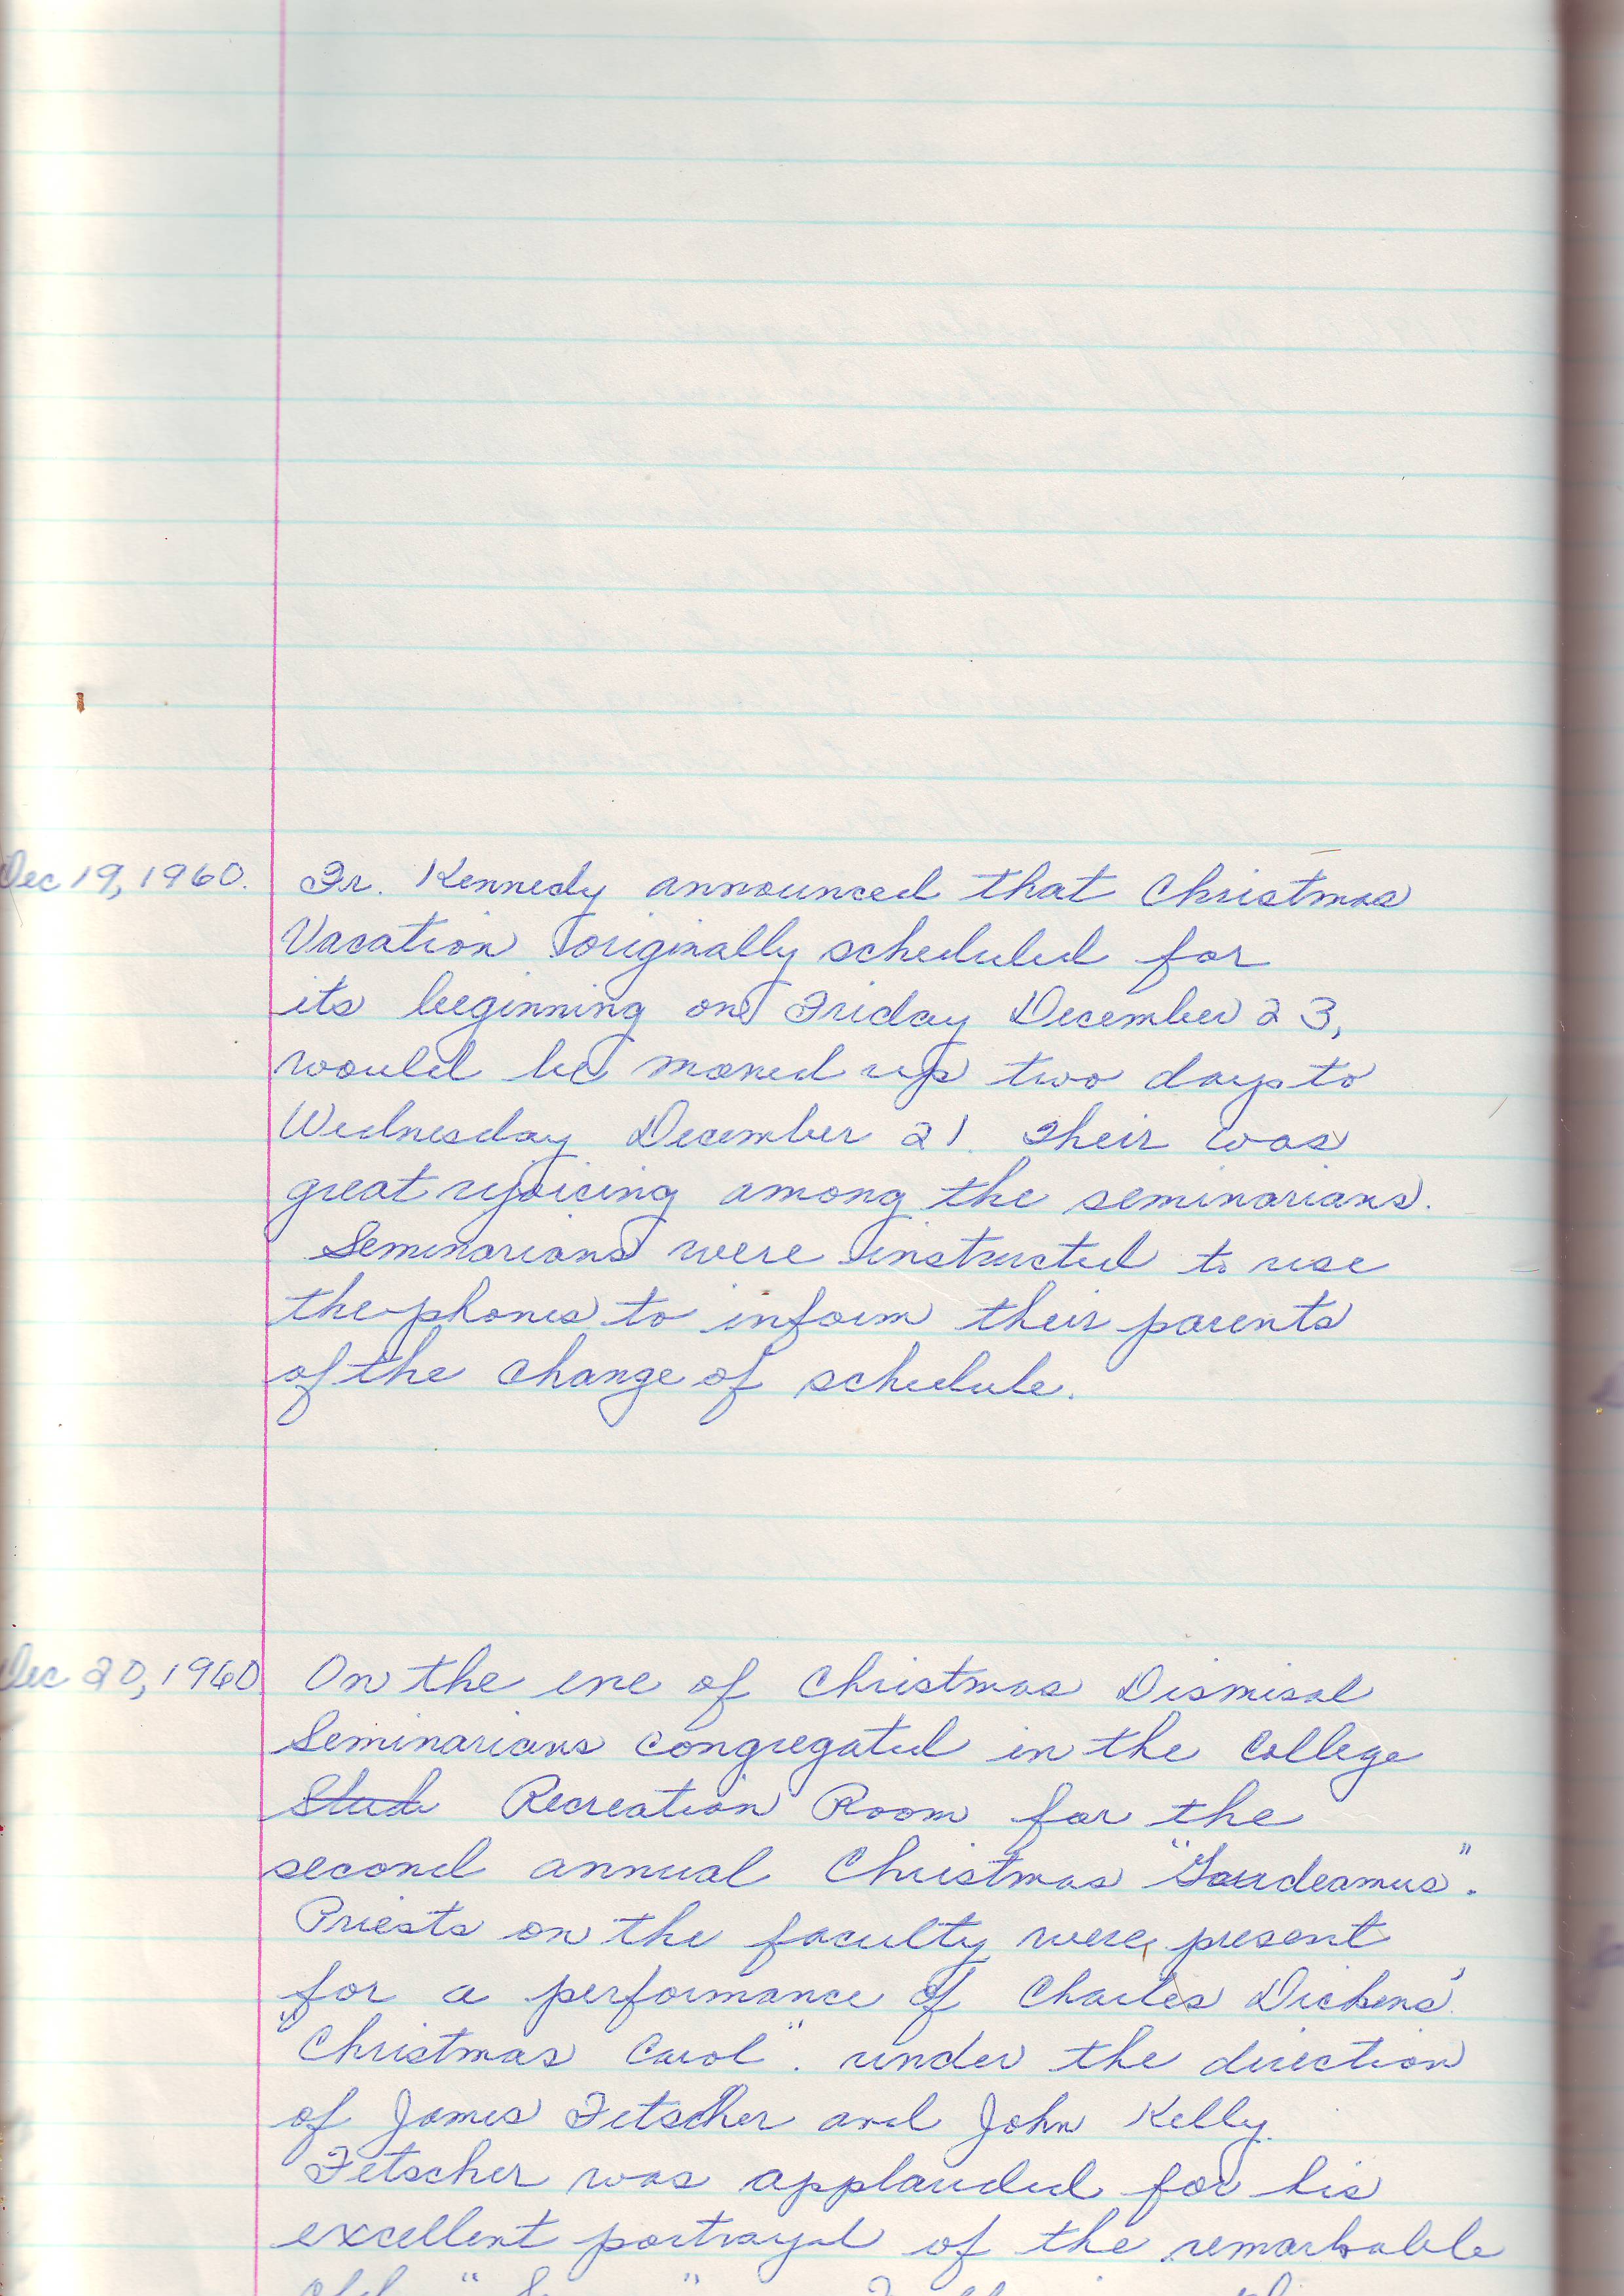 Dec 19, 1960. Fr. Kennedy announced that Christmas
Vacation originally scheduled for
its beginning on Friday December 23,
would be moved up two days to
Wednesday December 21. Their was
great rejoicing among the seminarians.
Seminarians were instructed to use
the phones to inform their parents
of the change of schedule.
Dec 20, 1960 On the eve of Christmas Dismisal
Seminarians congregated in the College
Stude Recreation Room for the
second annual Christmas "Gaudeamus".
Priests on the faculty were present
for a performance of Charles Dickens'
"Christmas Carol". under the direction
of James Fetscher and John Kelly.
Fetscher was applauded for his
excellent portrayal of the remarkable